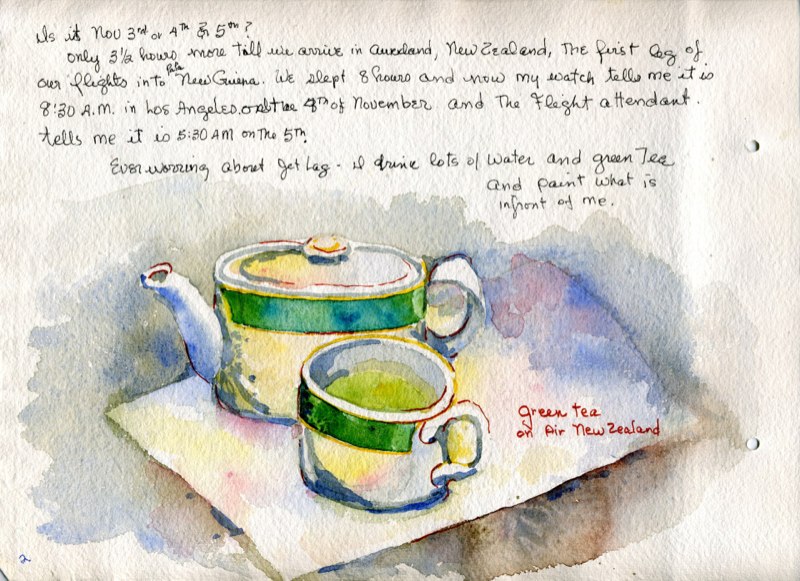 Is it Nov 3rd or 4th & 5th?
only 3½ hours more till we arrive in Auckland, New Zealand, The first leg of
our flights into Papa New Guena. We slept 8 hours and now my watch tells me it is
8:30 A.M. in Los Angeles on the 4th of November and The Flight attendant.
tells me it is 5:30 AM on the 5th.
Ever worring about Jet Lag - I drink lots of water and green Tea
and paint what is
infront of me.
green tea
on Air New Zealand
2